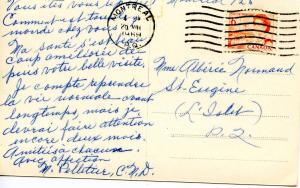 Vous êtes vous
Comment est tout
monde chez vous
Ma santé s'est
coup améliorée de-
puis votre belle visite.
Je compte reprendre
la vie normale avant
longtemps, mais je
devrai faire attention
encore deux mois.
Amitiés à chacun.
Avec affection
M. Pelletier, C.N.D.
MONTREAL
P.Q.
CANADA
Mme Albéric Normand
St-Eugène
(L'Islet)
P.Q.